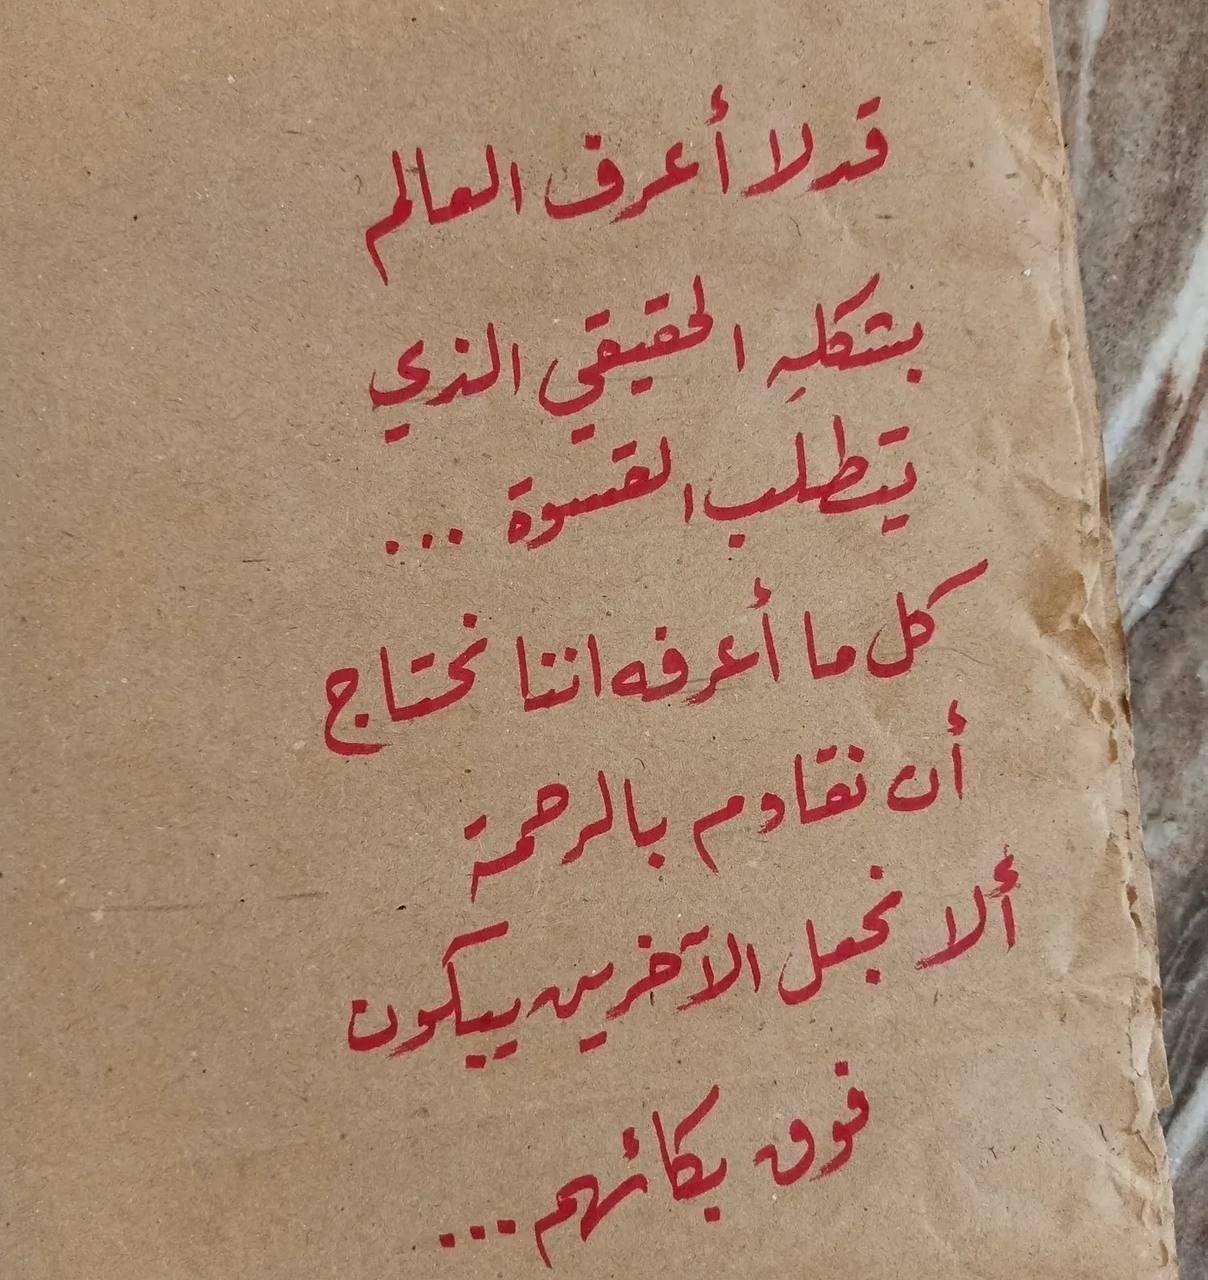 قد لا أعرف العالم
بشكلهِ الحقيقي الذي
يتطلب القسوة ...
كل ما أعرفه اننا نحتاج
أن نقاوم بالرحمة
ألا نجعل الآخرين يبكون
فوق بكائهم ...